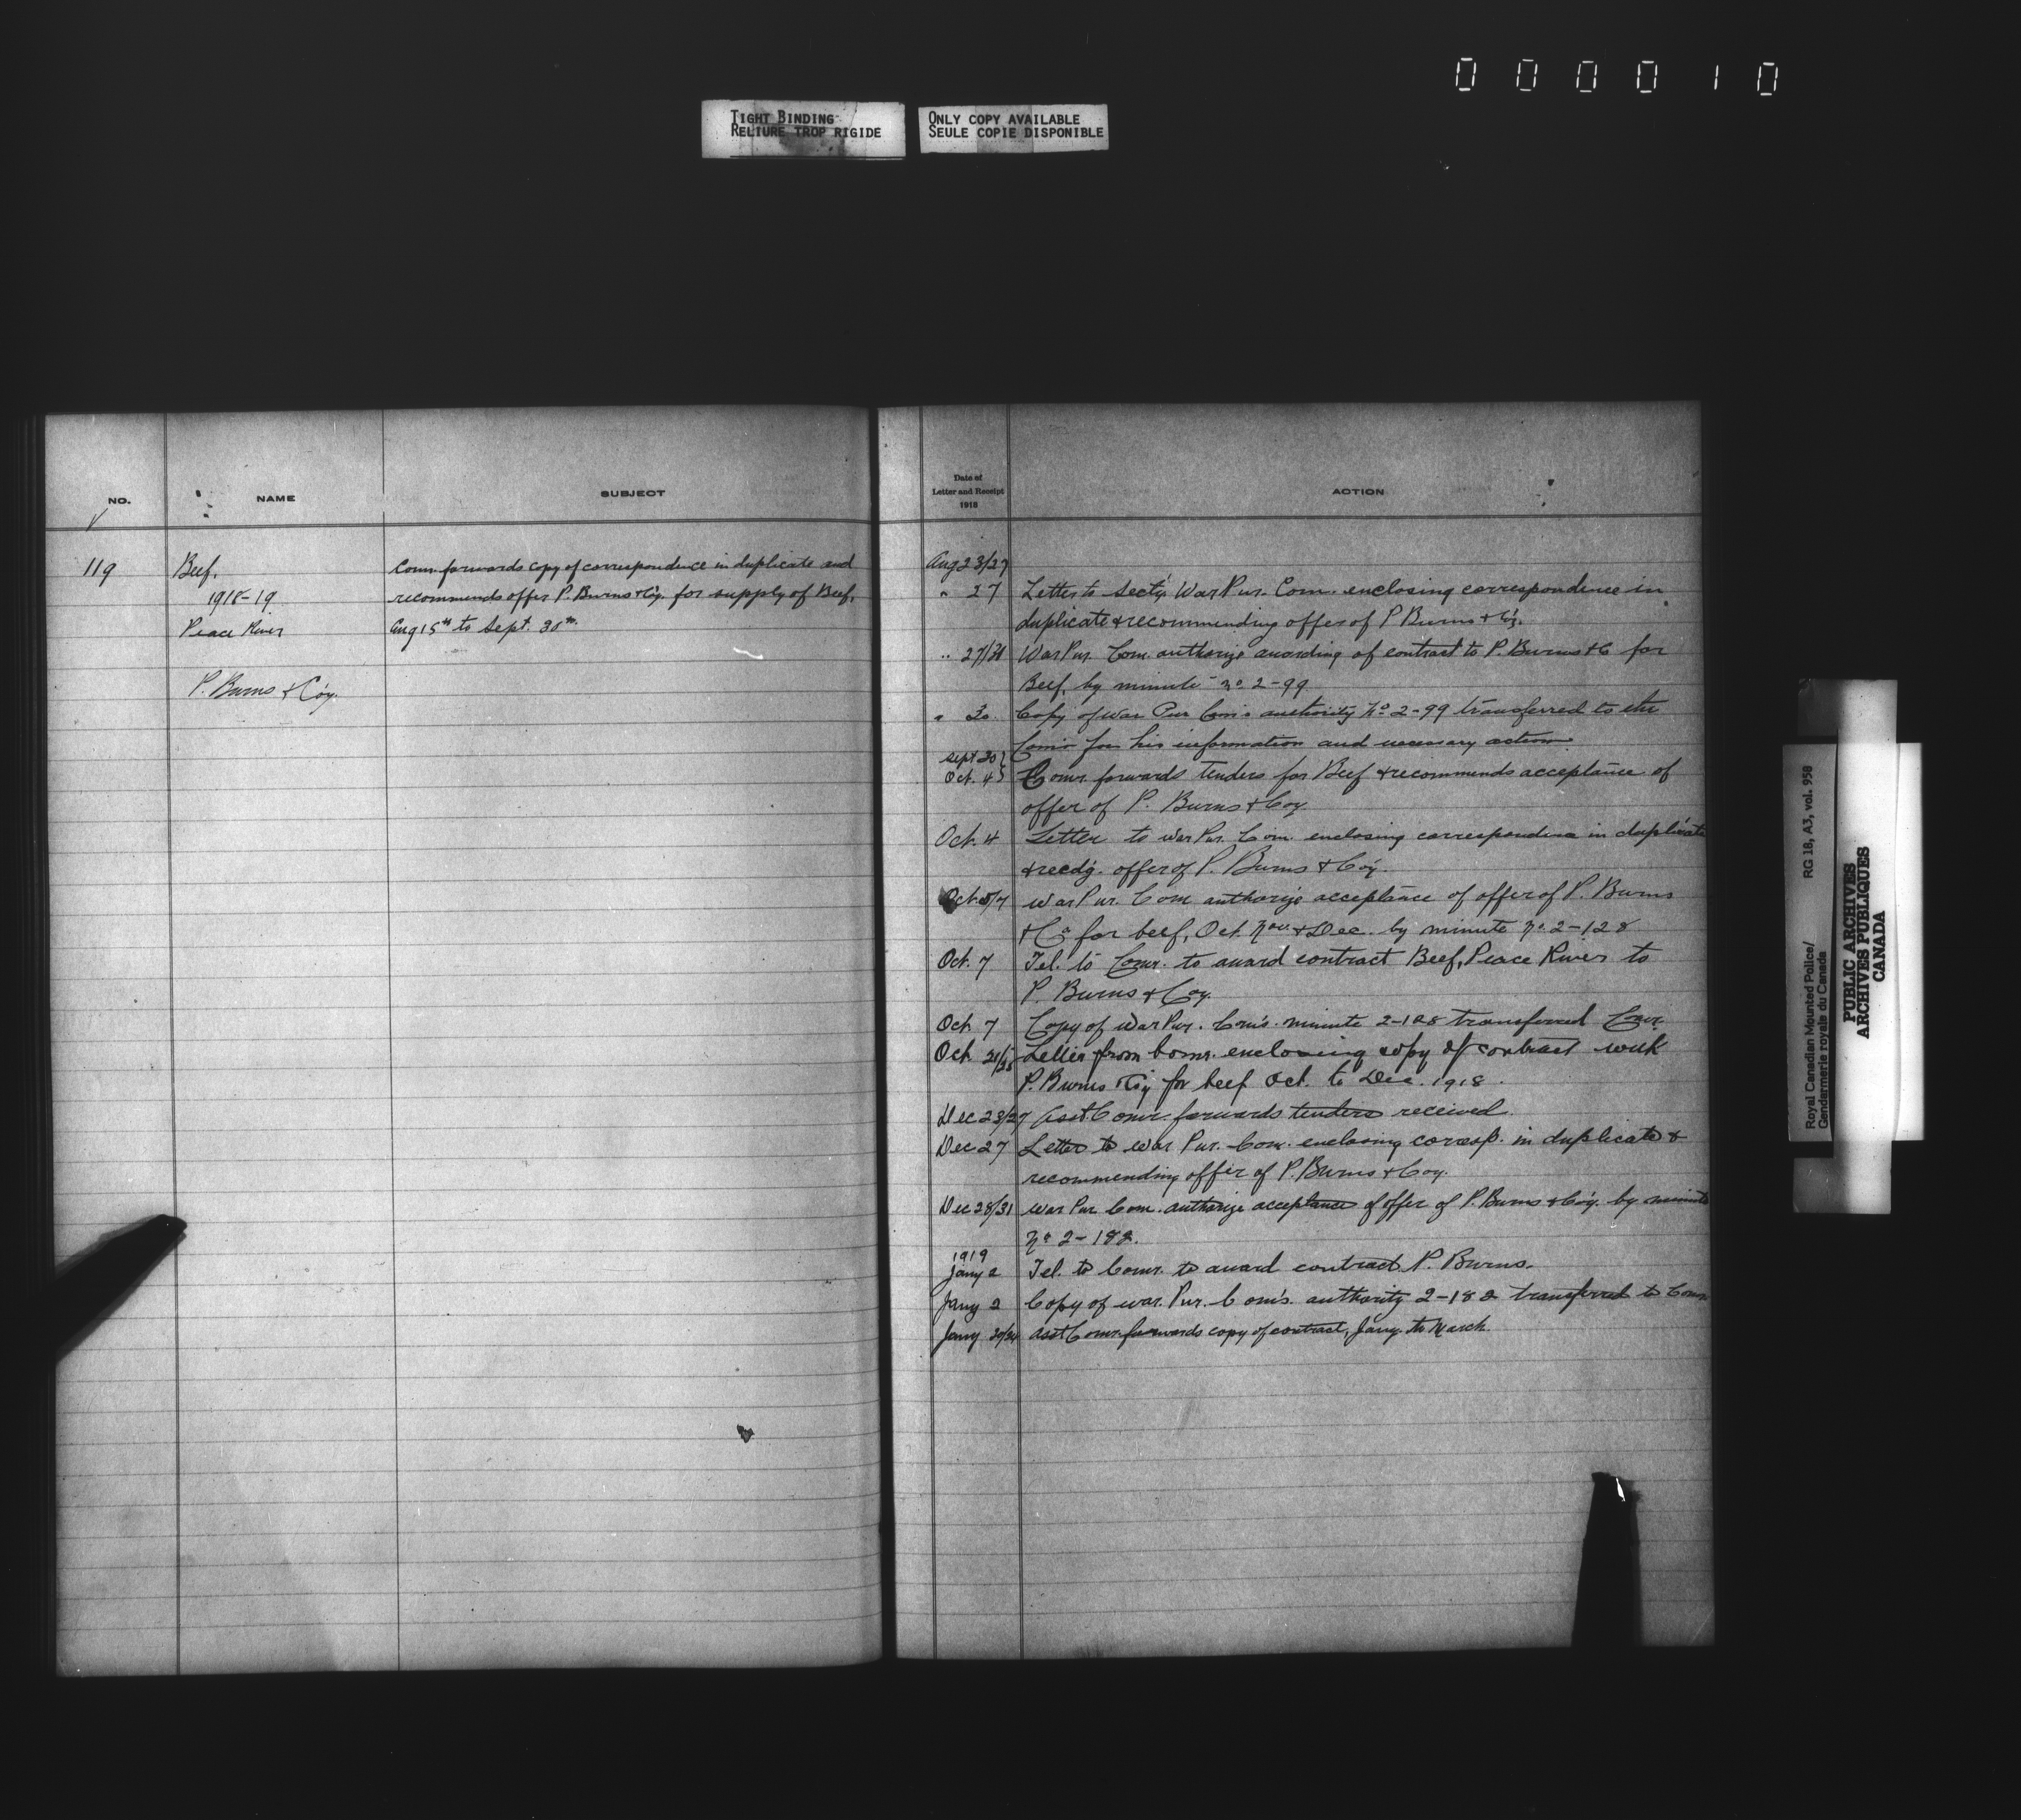 000010
TIGHT BINDING
RELIURE TROP RIGIDE
ONLY COPY AVAILABLE
SEULE COPIE DISPONIBLE
NO.
NAME
SUBJECT
119
Beef.
1918-19
Peace River
P. Burns & Co'y.
Comr. forwards copy of correspondence in duplicate and
recommends offer P. Burns & Co'y. for supply of Beef.
Aug 15th to Sept. 30th.
Date of
Letter and Receipt
1918
ACTION
Aug 23/27
" 27 Letter to Sect'y War Pur. Com. enclosing correspondence in
duplicate & recommending offer of P Burns & Co'y.
" 27/31 War Pur. Com. authorize awarding of contract to P. Burns & C for
Beef, by minute No 2-99
" 30. Copy of War Pur Com's authority No 2-99 transferred to the
Comr for his information and necessary action
Sept 30
Oct. 4 Comr. forwards tenders for Beef & recommends acceptance of
offer of P. Burns & Coy
Oct. 4 Letter to War Pur. Com. enclosing correspondence in duplicate
& recdg. offer of P. Burns & Co'y.
Oct. 5/7 War Pur. Com authorize acceptance of offer of P. Burns
& Co for beef, Oct. Nov. & Dec. by minute No. 2-128
Oct. 7 Tel. to Comr. to award contract Beef, Peace River to
P. Burns & Coy.
Oct. 7 Copy of War Pur. Com's. minute 2-128 transferred Comr.
Oct. 21/25 Letter from Comr. enclosing copy of contract with
P. Burns & Co'y for beef Oct. to Dec. 1918.
Dec 23/27 Asst Comr. forwards tenders received.
Dec 27 Letter to War Pur. Com. enclosing corresp. in duplicate &
recommending offer of P. Burns & Coy.
Dec 28/31 War Pur Com. authorize acceptance of offer of P. Burns & Co'y. by minute
No 2-182.
1919
Jany 2 Tel. to Comr. to award contract P. Burns.
Jany 2 Copy of War. Pur. Com's. authority 2-182 transferred to Comr
Jany 20/24 Asst Comr. forwards copy of contract, Jany. to March.
Royal Canadian Mounted Police/
Gendarmerie royale du Canada
RG 18, A3, vol. 958
PUBLIC ARCHIVES
ARCHIVES PUBLIQUES
CANADA